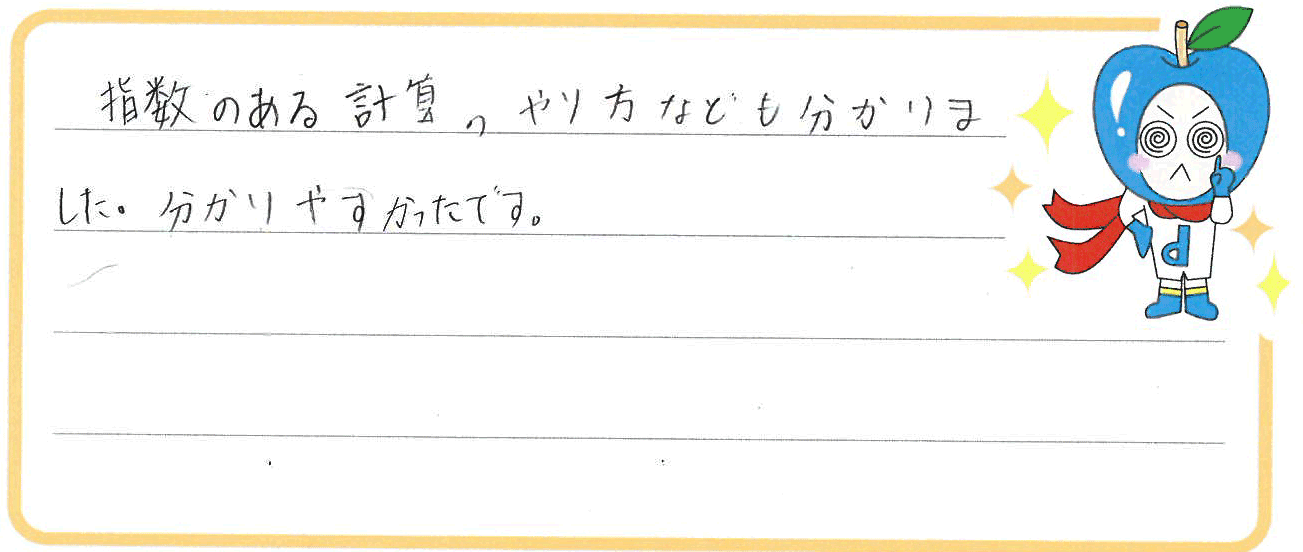 指数のある計算のやり方なども分かりま
した。分かりやすかったです。
d